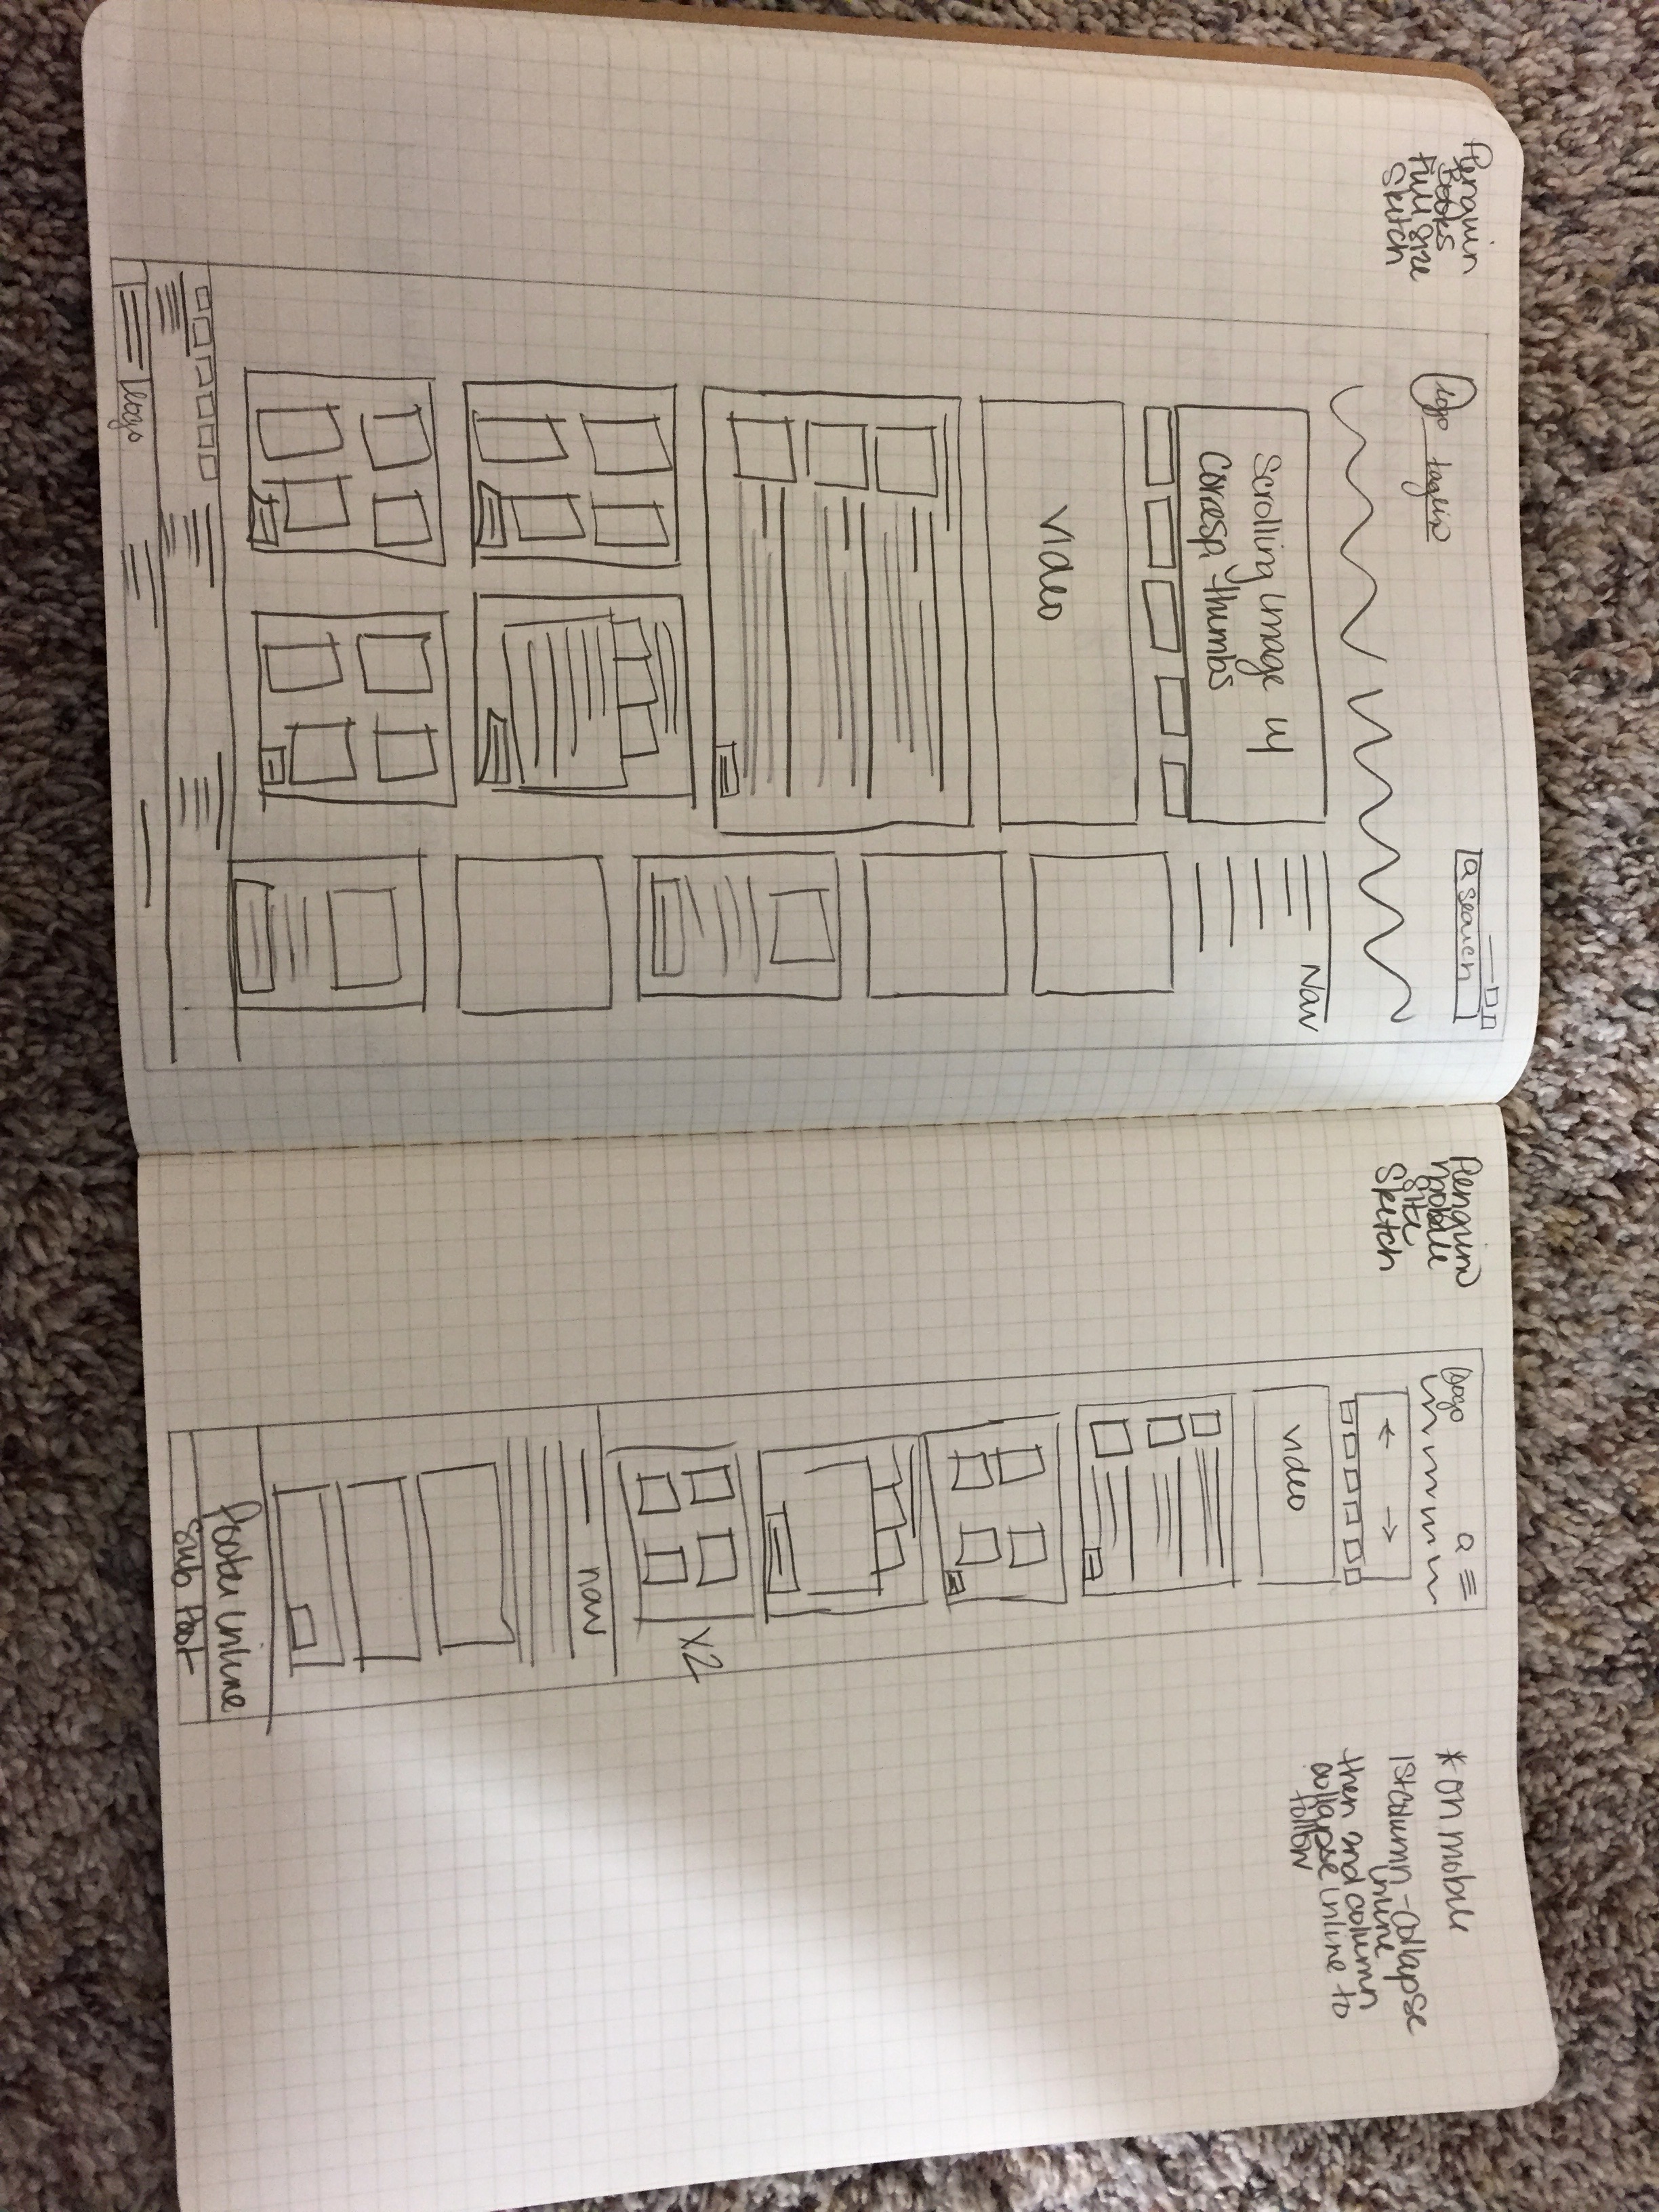 Penguin
Books
Full Size
Sketch
logo tagline
search
Nav
Scrolling image w/
Corresp. thumbs
Video
logo
Penguin
mobile
site
Sketch
logo
Video
X2
nav
footer inline
Sub Foot
* on mobile
1st column - collapse
inline
then 2nd column
collapse inline to
follow